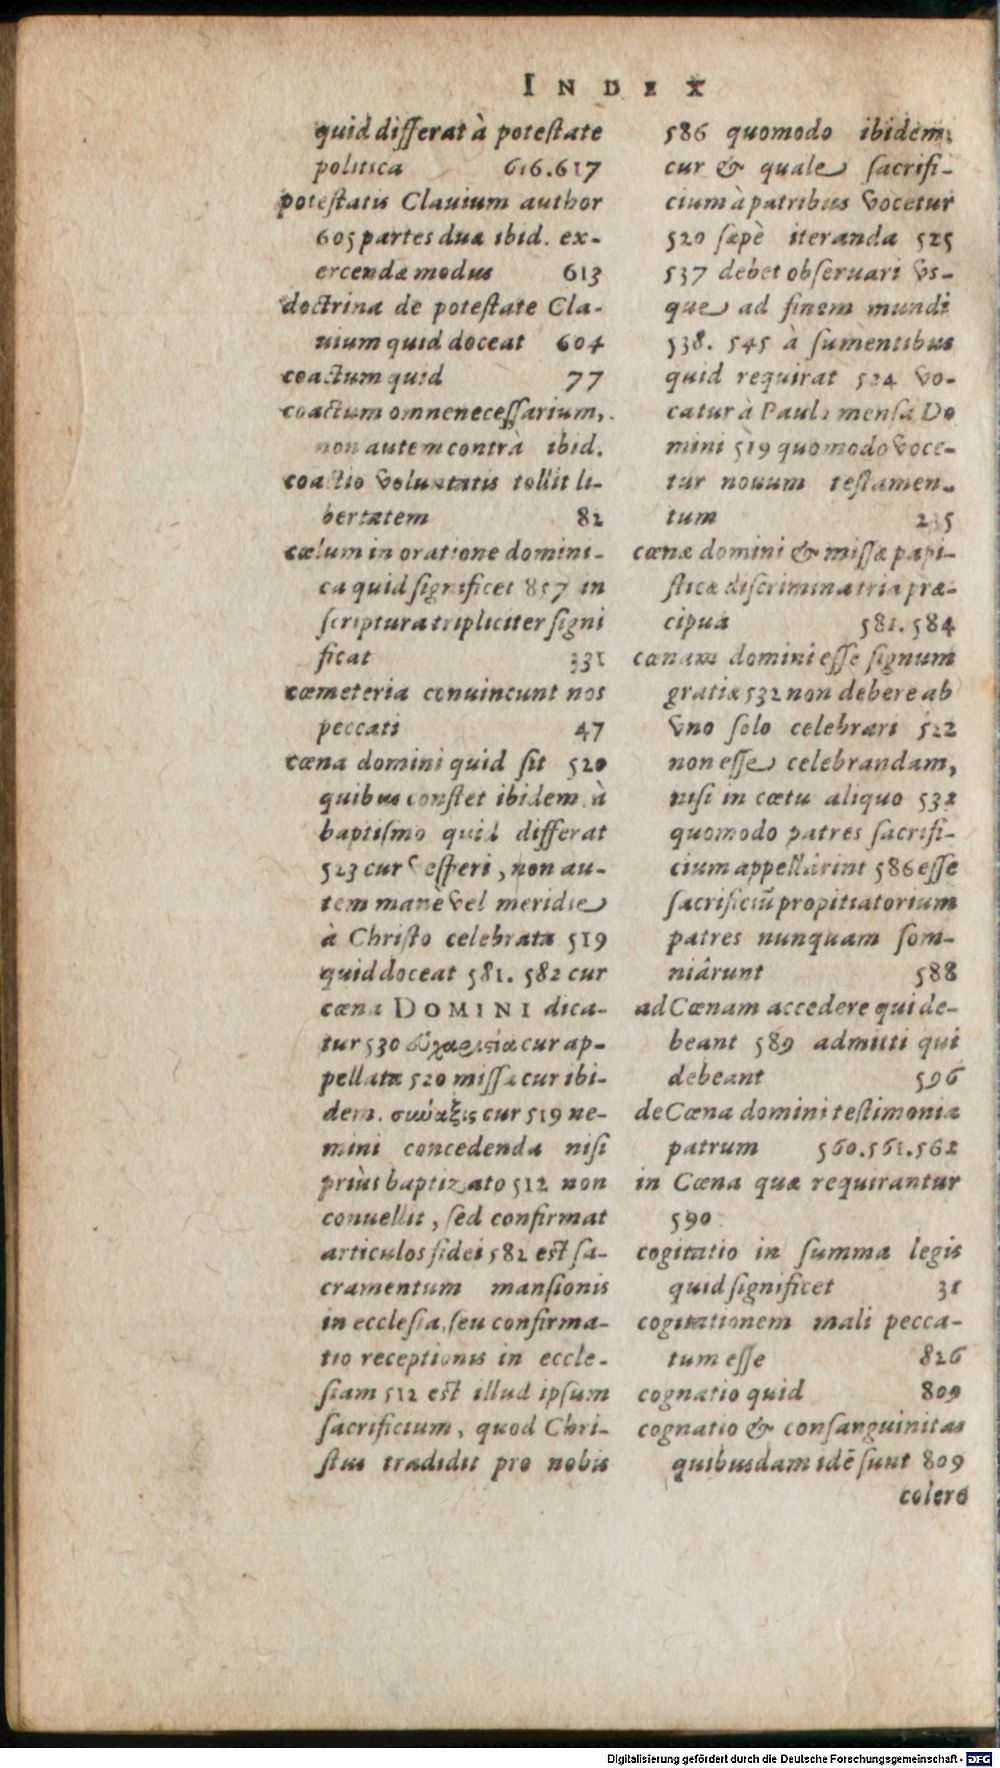 INDEX
quid differat à potestate
politica 616.617
potestatis Clauium author
605 partes duæ ibid. ex-
ercendæ modus 613
doctrina de potestate Cla-
uium quid doceat 604
coactum quid 77
coactum omne necessarium,
non autem contrà ibid.
coactio voluntatis tollit li-
bertatem 82
cœlum in oratione domini-
ca quid significet 857 in
scriptura tripliciter signi
ficat 331
cœmeteria conuincunt nos
peccati 47
cœna domini quid sit 520
quibus constet ibidem. à
baptismo quid differat
523 cur vesperi, non au-
tem manè vel meridie
à Christo celebrata 519
quid doceat 581. 582 cur
cœna DOMINI dica-
tur 530 εὐχαριστία cur ap-
pellata 520 missa cur ibi-
dem. σύναξις cur 519 ne-
mini concedenda nisi
priùs baptizato 512 non
conuellit, sed confirmat
articulos fidei 582 est sa-
cramentum mansionis
in ecclesia, seu confirma-
tio receptionis in eccle-
siam 512 est illud ipsum
sacrificium, quod Chri-
stus tradidit pro nobis
586 quomodo ibidem.
cur & quale sacrifi-
cium à patribus vocetur
520 sæpè iteranda 525
537 debet obseruari vs-
que ad finem mundi
538. 545 à sumentibus
quid requirat 524 vo-
catur à Paulo mensa Do
mini 519 quomodo voce-
tur nouum testamen-
tum
cœnæ domini & missæ papi-
sticæ discrimina tria præ-
cipua 581. 584
cœnam domini esse signum
gratiæ 532 non debere ab
vno solo celebrari 522
non esse celebrandam,
nisi in cœtu aliquo 532
quomodo patres sacrifi-
cium appellârint 586 esse
sacrificiũ propitiatorium
patres nunquam som-
niârunt 588
ad Cœnam accedere qui de-
beant 589 admitti qui
debeant 596
de Cœna domini testimonia
patrum 560.561.562
in Cœna quæ requirantur
590.
cogitatio in summa legis
quid significet 31
cogitationem mali pecca-
tum esse 826
cognatio quid 809
cognatio & consanguinitas
quibusdam idẽ sunt 809
colere
Digitalisierung gefördert durch die Deutsche Forschungsgemeinschaft - DFG